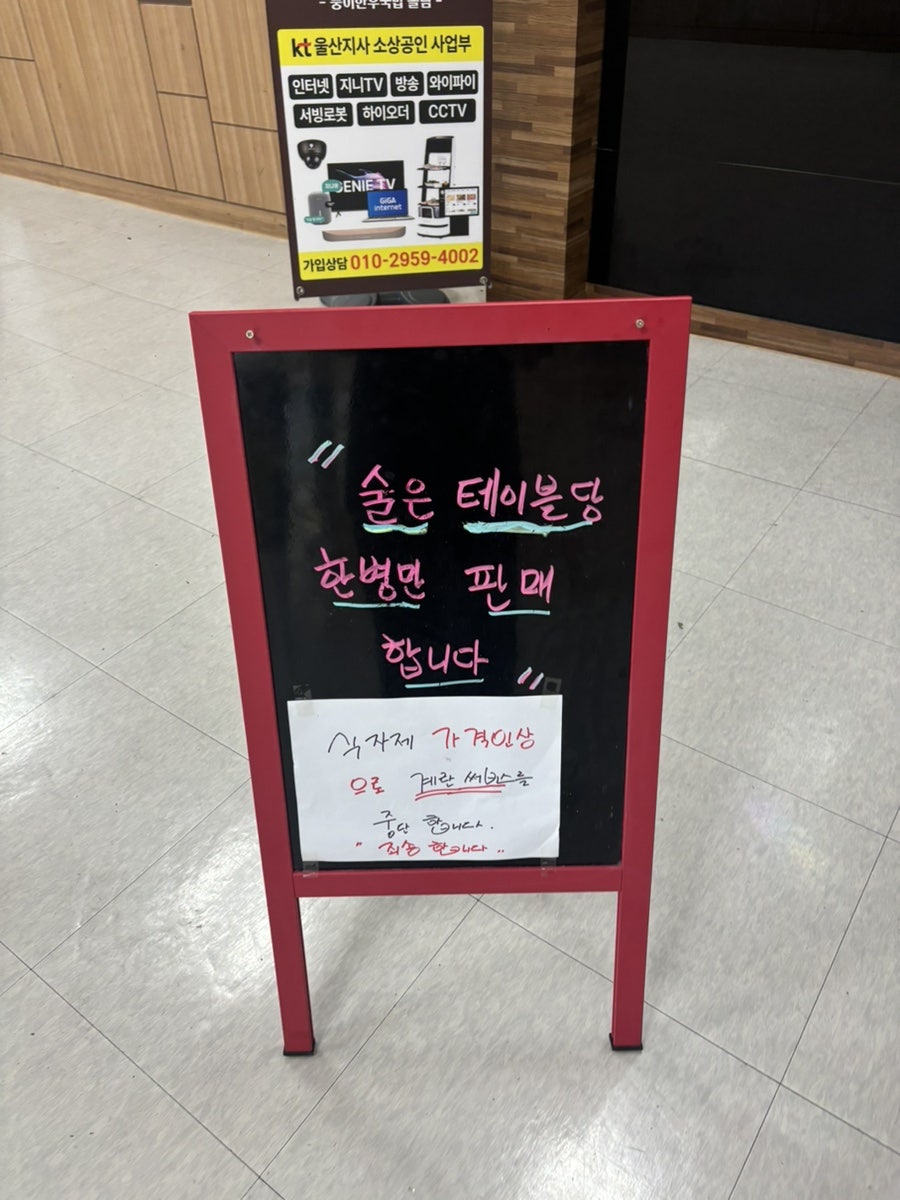 kt 울산지사 소상공인 사업부
인터넷 지니TV 방송 와이파이
서빙로봇 하이오더 CCTV
GENIE TV
GiGA
internet
가입상담 010-2959-4002
" 술은 테이블당
한병만 판매
합니다 "
식자제 가격인상
으로 계란 써비스를
중단 합니다.
" 죄송 합니다 "